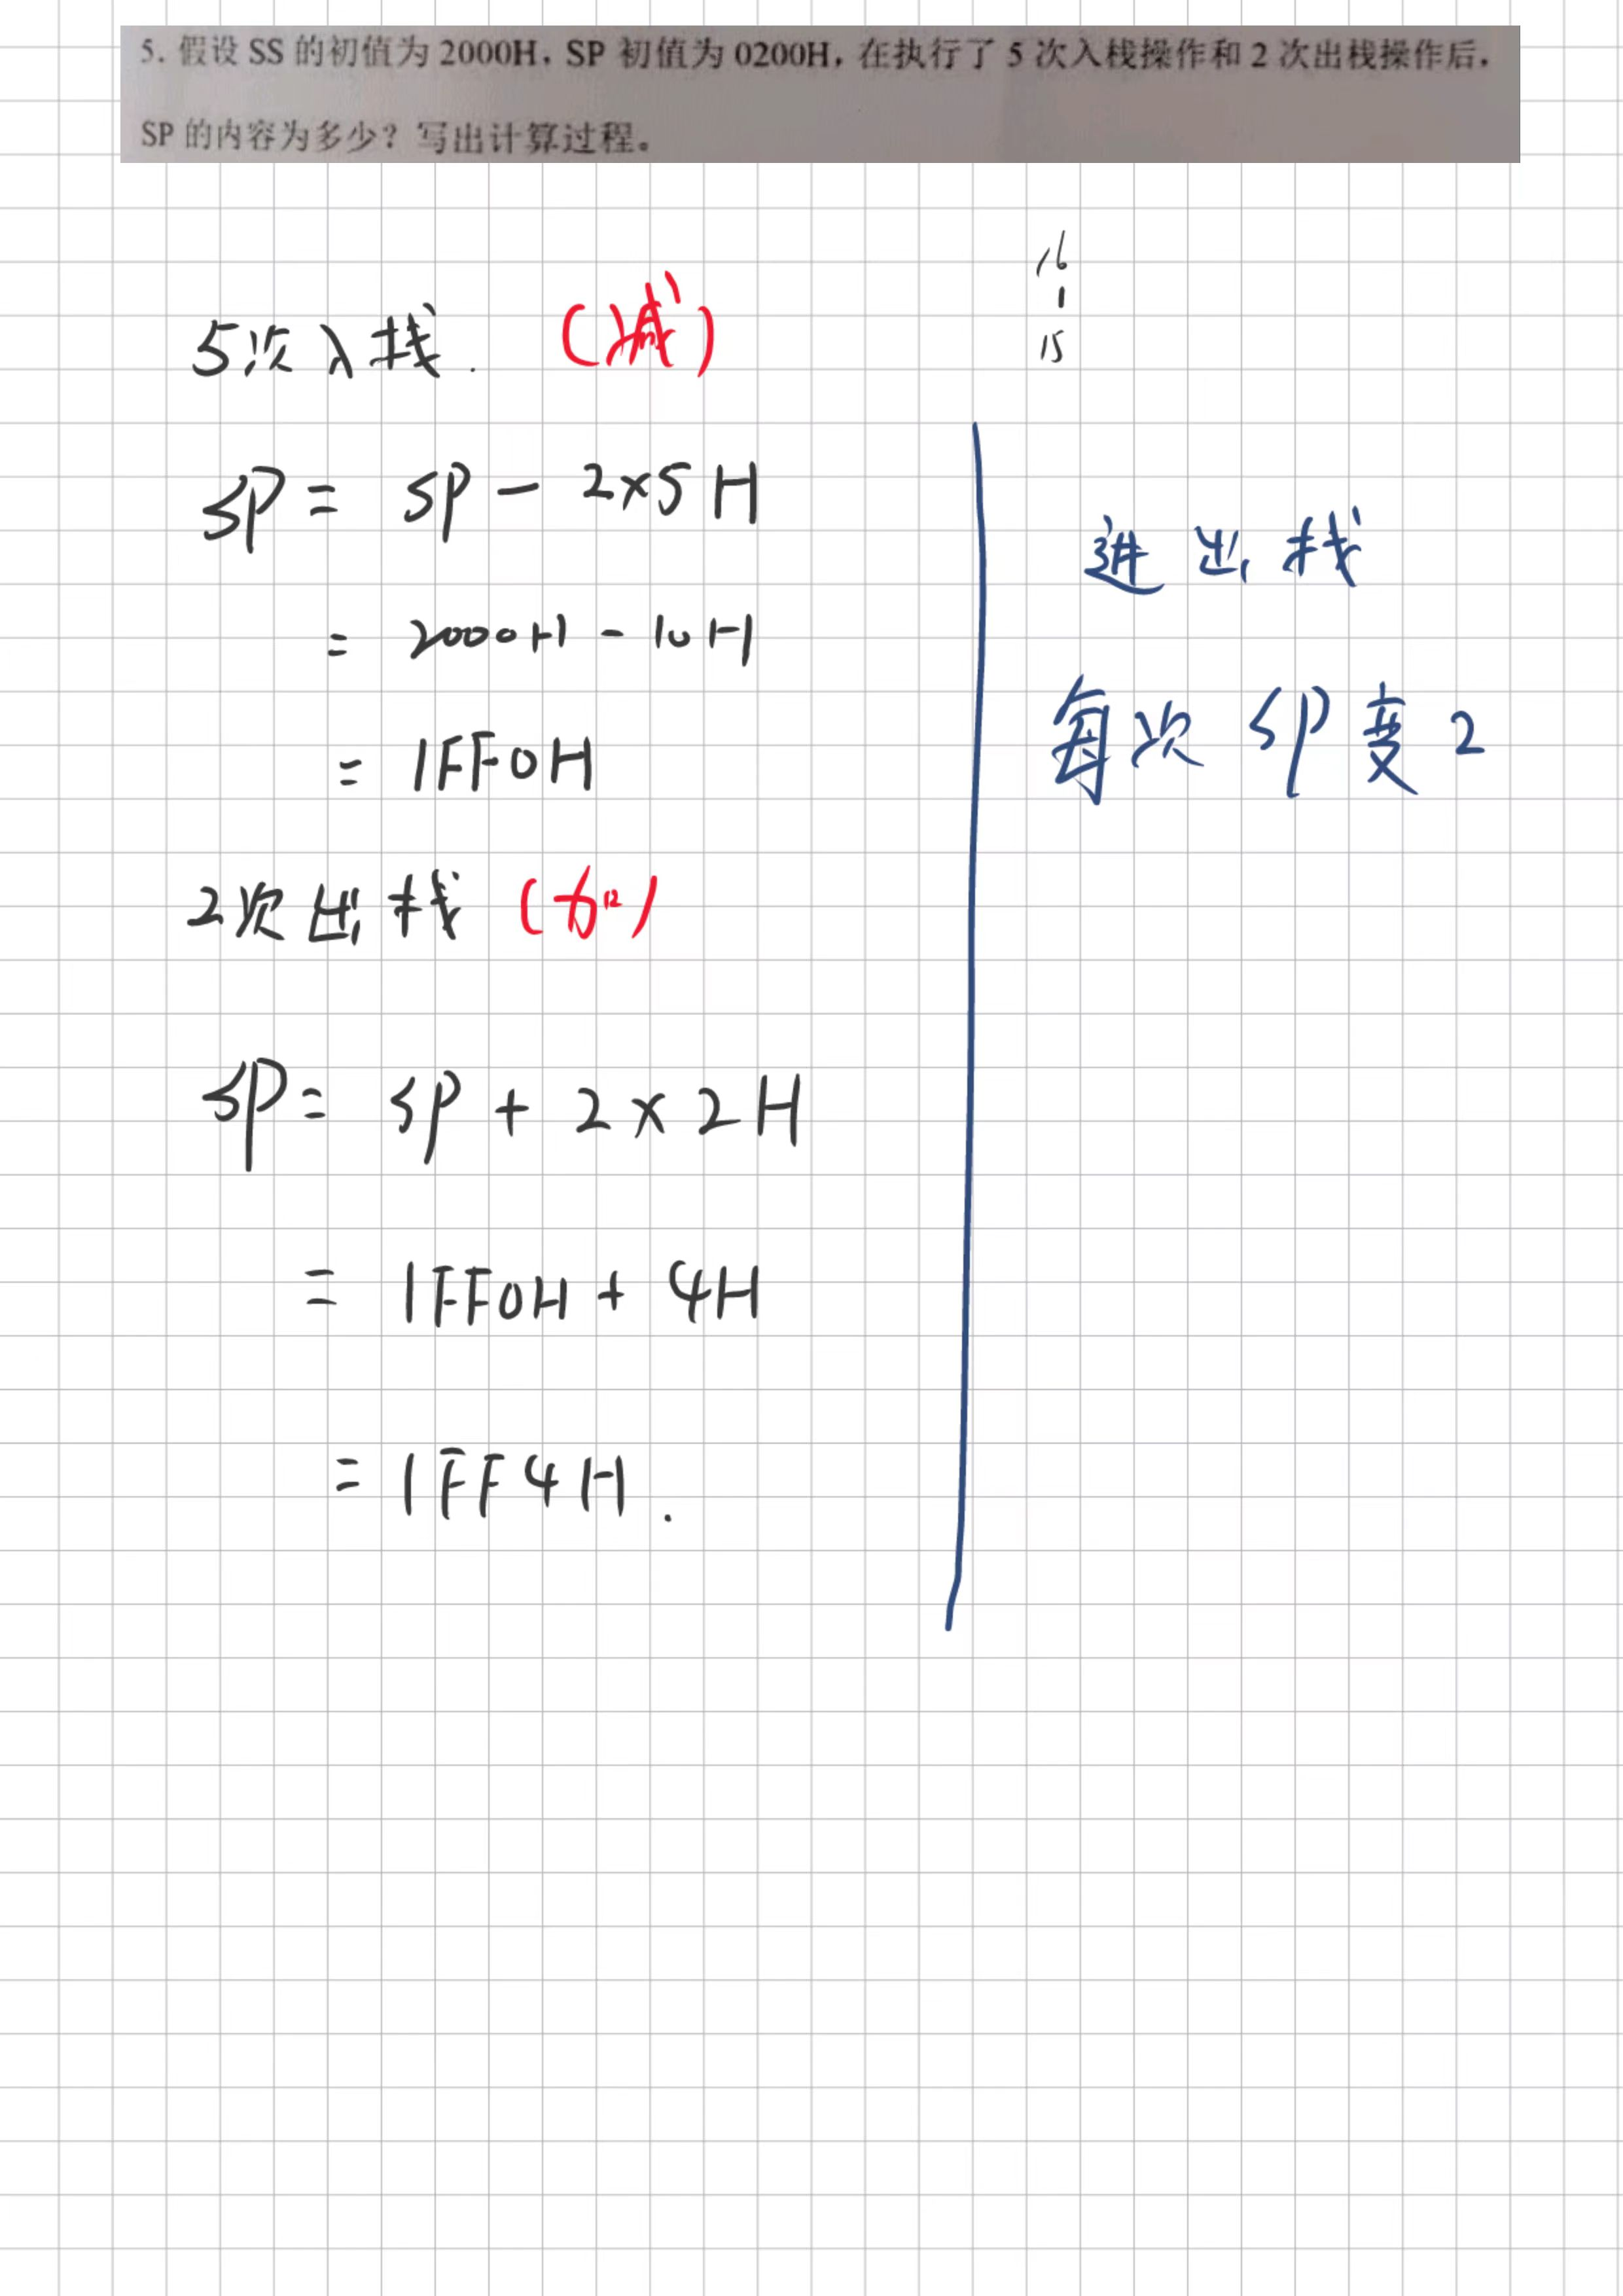 5. 假设 SS 的初值为 2000H，SP 初值为 0200H，在执行了 5 次入栈操作和 2 次出栈操作后，
SP 的内容为多少？写出计算过程。
16
1
15
5次入栈. (减)
SP = SP - 2×5H
= 2000H - 10H
= 1FF0H
2次出栈 (加)
SP = SP + 2×2H
= 1FF0H + 4H
= 1FF4H.
进出栈
每次 SP变2